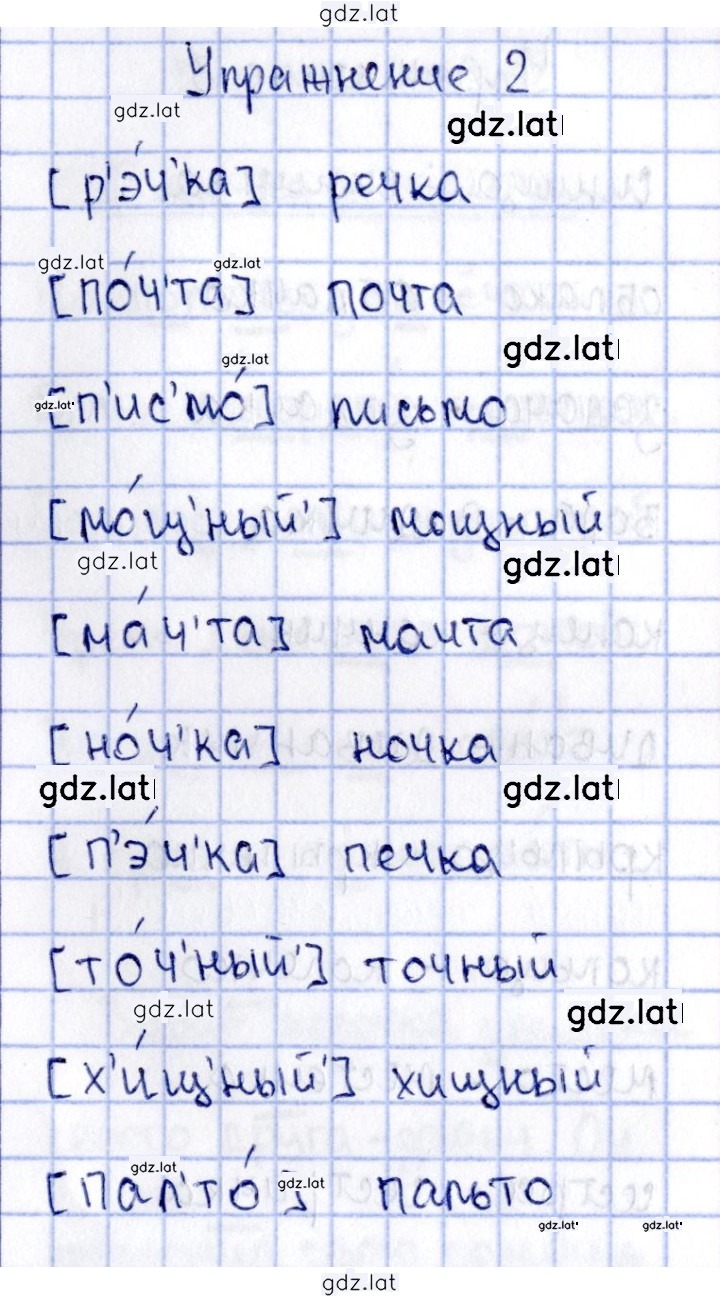 gdz.lat
Упражнение 2
gdz.lat
gdz.lat
[р'э́ч'ка] речка
gdz.lat gdz.lat
[по́ч'та] почта
gdz.lat
gdz.lat
gdz.lat [п'ис'мо́] письмо
[мо́щ'ный'] мощный
gdz.lat gdz.lat
[ма́ч'та] мачта
[но́ч'ка] ночка
gdz.lat gdz.lat
[п'э́ч'ка] печка
[то́ч'ный'] точный
gdz.lat gdz.lat
[х'и́щ'ный'] хищный
gdz.lat
[пал'то́] gdz.lat пальто
gdz.lat gdz.lat
gdz.lat